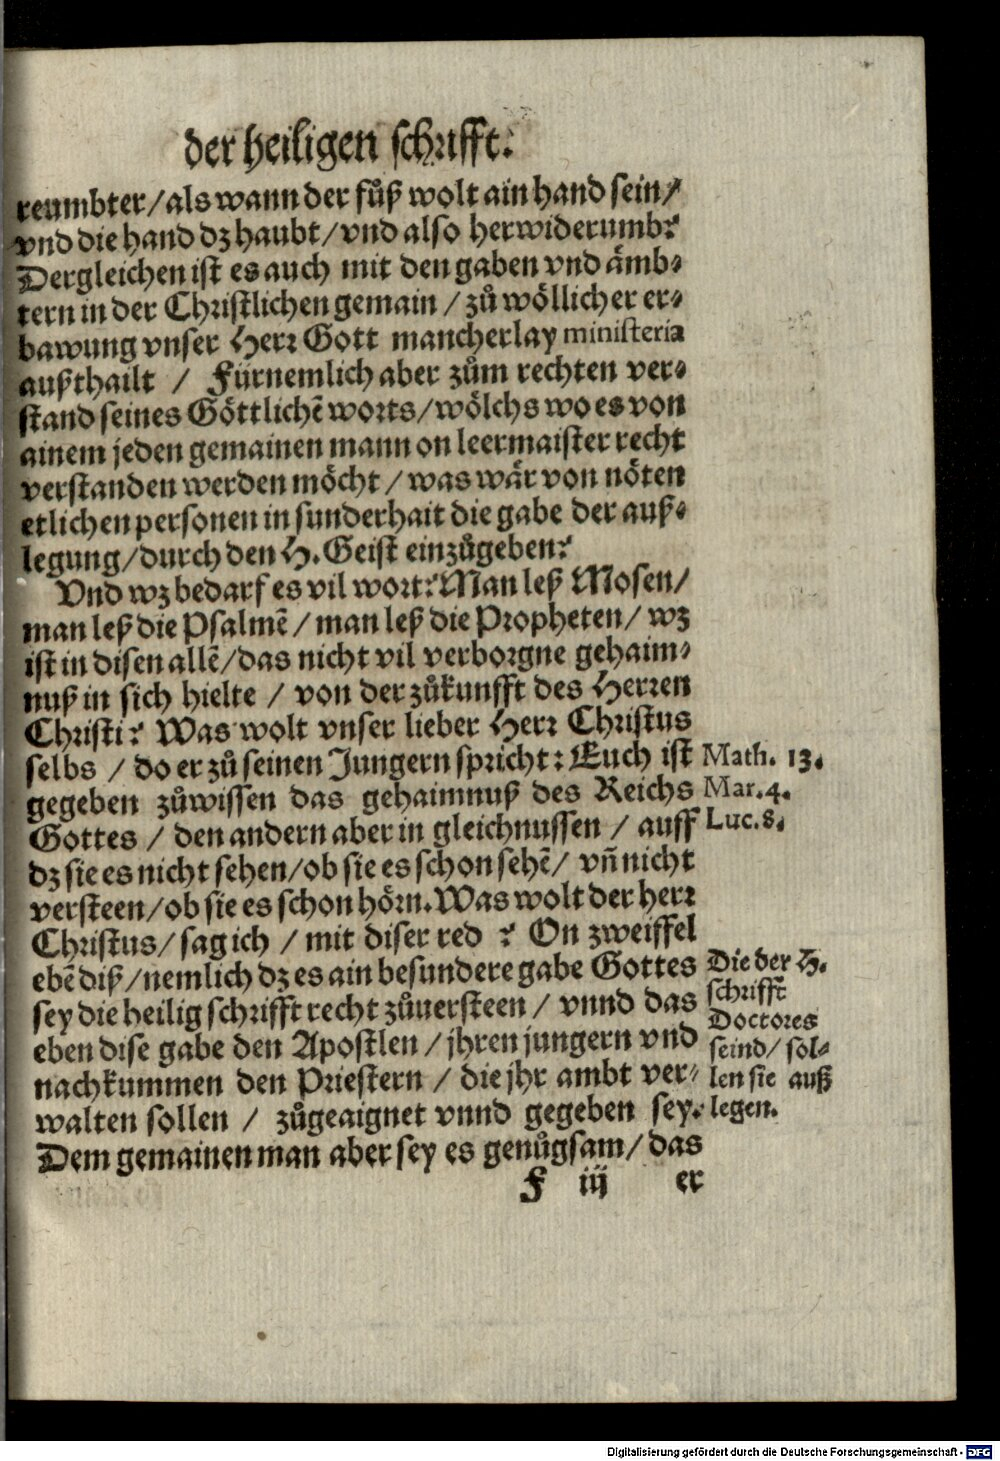 der heiligen schrifft.
reumbter/als wann der fůß wolt ain hand sein/
vnd die hand dz haubt/vnd also herwiderumb?
Dergleichen ist es auch mit den gaben vnd ämb-
tern in der Christlichen gemain / zů wöllicher er-
bawung vnser Herr Gott mancherlay ministeria
außthailt / Fürnemlich aber zům rechten ver-
stand seines Göttlichē worts/wölchs wo es von
ainem jeden gemainen mann on leermaister recht
verstanden werden möcht/was wär von nöten
etlichen personen in sunderhait die gabe der auß-
legung/durch den H. Geist einzůgeben?
Vnd wz bedarf es vil wort? Man leß Mosen/
man leß die Psalmē/man leß die Propheten/wz
ist in disen allē/das nicht vil verborgne gehaim-
nuß in sich hielte / von der zůkunfft des Herren
Christi? Was wolt vnser lieber Herr Christus
selbs / do er zů seinen Jungern spricht: Euch ist
gegeben zůwissen das gehaimnuß des Reichs
Gottes / den andern aber in gleichnussen / auff
dz sie es nicht sehen/ob sie es schon sehē/ vñ nicht
versteen/ob sie es schon hörn. Was wolt der herr
Christus/sag ich / mit diser red ? On zweiffel
ebē diß/nemlich dz es ain besundere gabe Gottes
sey die heilig schrifft recht zůuersteen / vnnd das
eben dise gabe den Apostlen / jhren jungern vnd
nachkummen den Priestern / die jhr ambt ver-
walten sollen / zůgeaignet vnnd gegeben sey.
Dem gemainen man aber sey es genůgsam/das
F iij er
Math. 13.
Mar. 4.
Luc. 8.
Die der H.
schrifft
Doctores
seind/ sol-
len sie auß
legen.
Digitalisierung gefördert durch die Deutsche Forschungsgemeinschaft - DFG